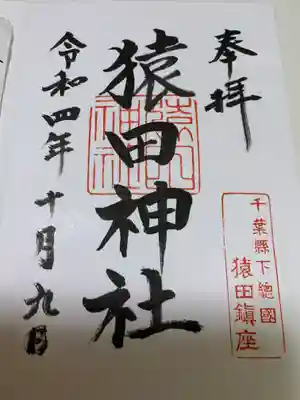 奉拝
千葉縣下總國
猿田鎭座
猿田神社
猿田
神社
令和四年十月九日